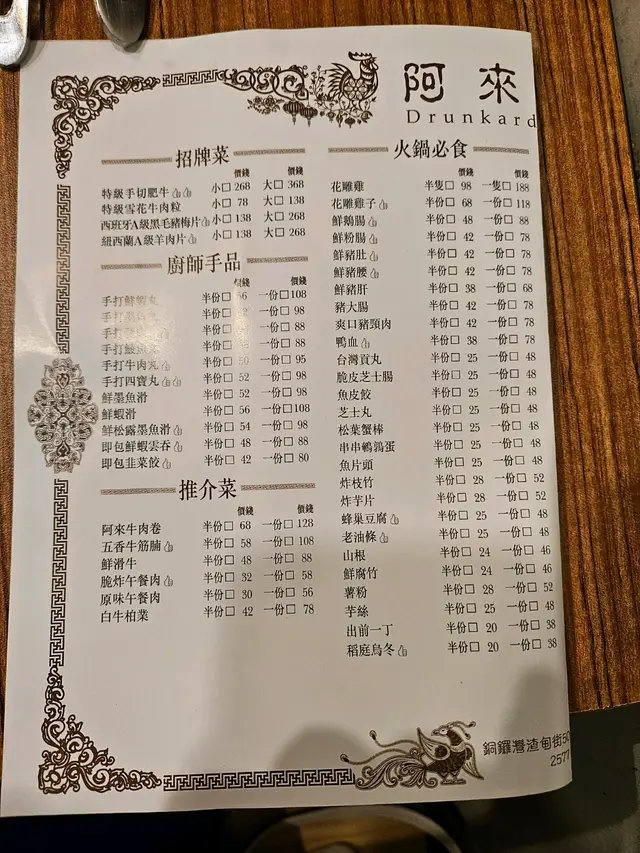 阿來
Drunkard
招牌菜
價錢 價錢
特級手切肥牛 小□ 268 大□ 368
特級雪花牛肉粒 小□ 78 大□ 138
西班牙A級黑毛豬梅片 小□ 138 大□ 268
紐西蘭A級羊肉片 小□ 138 大□ 268
廚師手品
價錢 價錢
手打鮮蝦丸 半份□ 56 一份□ 108
手打墨魚丸 半份□ 一份□ 98
手打 半份□ 一份□ 88
手打鯪魚丸 半份□ 一份□ 88
手打牛肉丸 半份□ 50 一份□ 95
手打四寶丸 半份□ 52 一份□ 98
鮮墨魚滑 半份□ 52 一份□ 98
鮮蝦滑 半份□ 56 一份□ 108
鮮松露墨魚滑 半份□ 54 一份□ 98
即包鮮蝦雲吞 半份□ 48 一份□ 88
即包韭菜餃 半份□ 42 一份□ 80
推介菜
價錢 價錢
阿來牛肉卷 半份□ 68 一份□ 128
五香牛筋腩 半份□ 58 一份□ 108
鮮滑牛 半份□ 48 一份□ 88
脆炸午餐肉 半份□ 32 一份□ 58
原味午餐肉 半份□ 30 一份□ 56
白牛柏葉 半份□ 42 一份□ 78
火鍋必食
價錢 價錢
花雕雞 半隻□ 98 一隻□ 188
花雕雞子 半份□ 68 一份□ 118
鮮鵝腸 半份□ 48 一份□ 88
鮮粉腸 半份□ 42 一份□ 78
鮮豬肚 半份□ 42 一份□ 78
鮮豬腰 半份□ 42 一份□ 78
鮮豬肝 半份□ 38 一份□ 68
豬大腸 半份□ 42 一份□ 78
爽口豬頸肉 半份□ 42 一份□ 78
鴨血 半份□ 38 一份□ 78
台灣貢丸 半份□ 25 一份□ 48
脆皮芝士腸 半份□ 25 一份□ 48
魚皮餃 半份□ 25 一份□ 48
芝士丸 半份□ 25 一份□ 48
松葉蟹棒 半份□ 25 一份□ 48
串串鵪鶉蛋 半份□ 25 一份□ 48
魚片頭 半份□ 25 一份□ 48
炸枝竹 半份□ 28 一份□ 52
炸芋片 半份□ 28 一份□ 52
蜂巢豆腐 半份□ 25 一份□ 48
老油條 半份□ 25 一份□ 48
山根 半份□ 24 一份□ 46
鮮腐竹 半份□ 24 一份□ 46
薯粉 半份□ 28 一份□ 52
芋絲 半份□ 25 一份□ 48
出前一丁 半份□ 20 一份□ 38
稻庭烏冬 半份□ 20 一份□ 38
銅鑼灣渣甸街50
2577